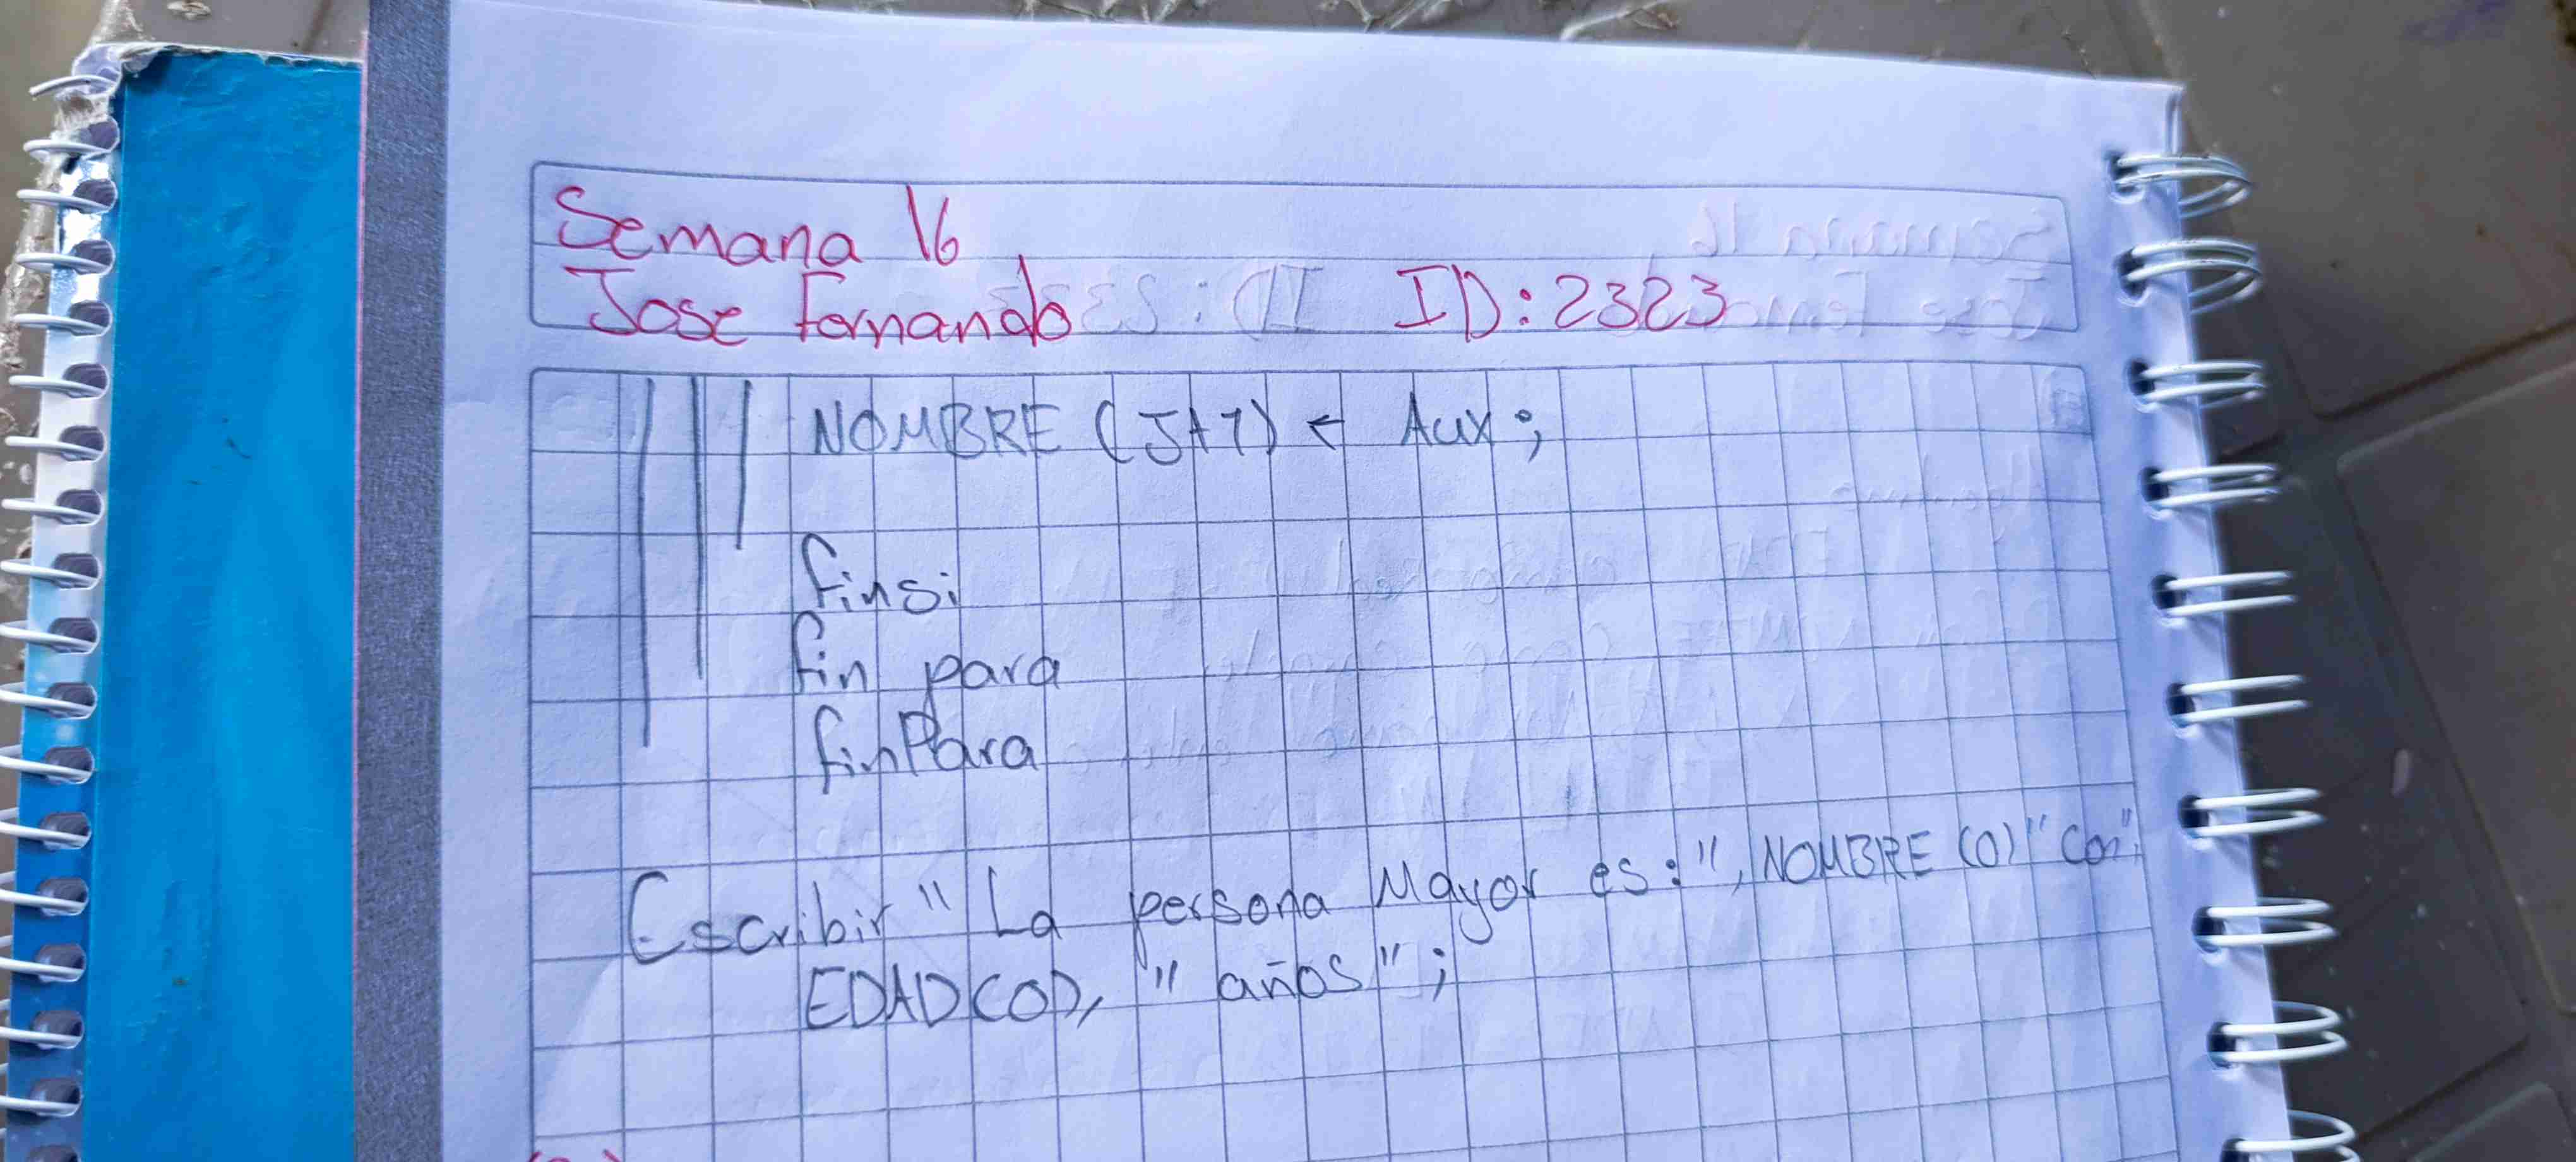 Semana 16
Jose Fernando ID: 2323
NOMBRE (J+1) ← Aux;
finsi
fin para
finPara
Escribir "La persona Mayor es:", NOMBRE (0) "Con",
EDAD(0), "años";